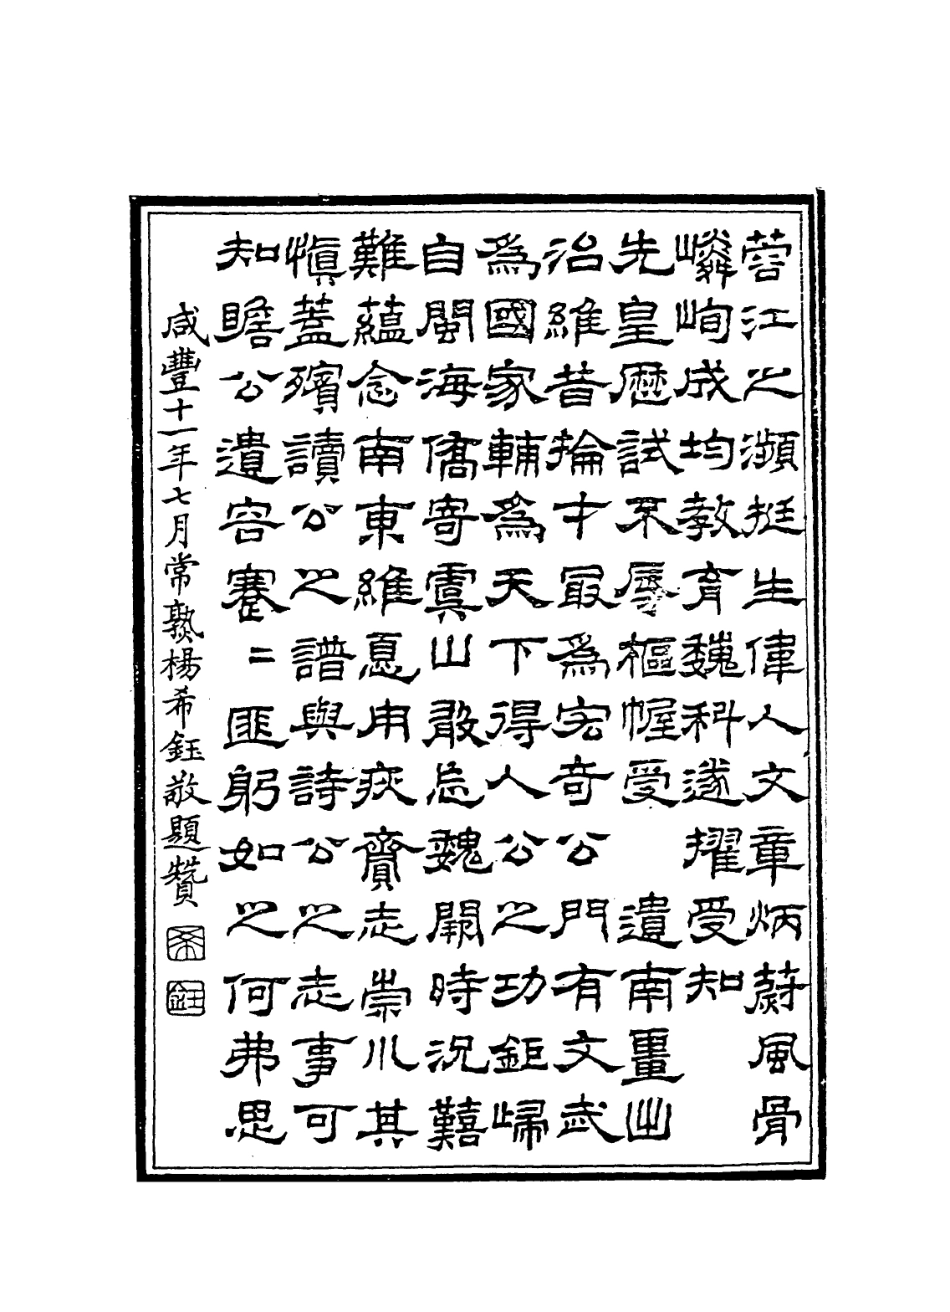 蓉江之瀕挺生偉人文章炳蔚風骨
嶙峋成均教育魏科遂擢受知
先皇歷試不辱樞幄受遺南畺出
治維昔掄才最爲宏奇公門有文武
爲國家輔爲天下得人公之功鉅歸
自閩海僑寄虞山敢忘魏闕時況囏
難蘊念南東維息用疢齎志崇川其
愼蓋殯讀公之譜與詩公之志事可
知瞻公遺容蹇二匪躬如之何弗思
咸豐十一年七月常熟楊希鈺敬題贊
希
鈺